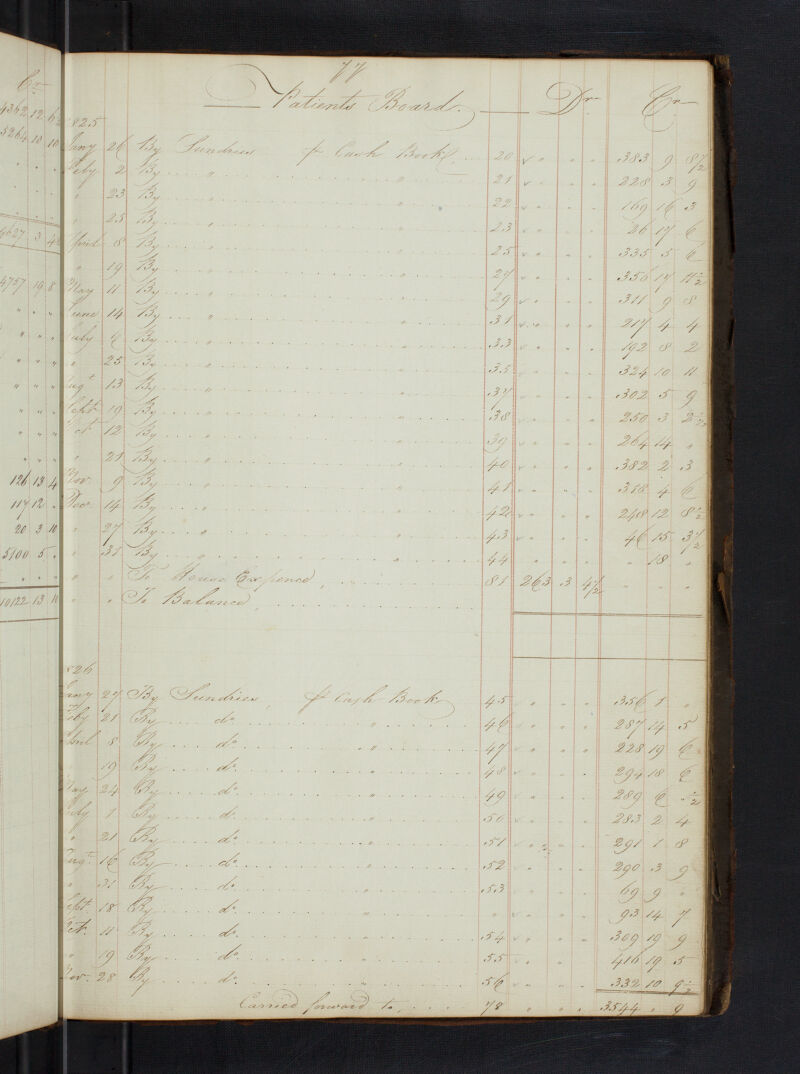 Cr
4362 12 6½
5264 10 10
4757 19 8
126 13 4
117 12 "
20 3 10
5100 5 "
10122 13 10
77
Patients Board. Dr Cr
1825
Jany 26 By Sundries pr Cash Book 20 383 9 8½
Feby 2 By " " 21 228 3 9
" 23 By " " 22 169 16 3
" 25 By " " 23 26 17 6
April 8 By " " 25 335 5 6
" 19 By " " 27 356 17 11½
May 11 By " " 29 311 9 8
June 14 By " " 31 217 4 4
July 6 By " " 33 192 8 2
" 25 By " " 35 324 10 11
Augt 13 By " " 37 302 5 9
Sept 19 By " " 38 250 3 2½
Oct 12 By " " 39 264 14 "
" 21 By " " 40 382 2 3
Nov. 9 By " " 41 318 4 6
Decr 14 By " " 42 248 12 8½
" 27 By " " 43 46 15 3½
" 31 By " " 44 " 18 "
" " To House Expence 81 263 3 4½
" " To Balance
1826
Jany 27 By Sundries pr Cash Book 45 356 1 "
Feby 21 By do " 46 287 14 5
April 8 By do " 47 228 19 6
" 19 By do " 48 294 18 6
May 24 By do " 49 289 6 ½
July 1 By do " 50 283 2 4
" 21 By do " 51 291 1 8
Augt 16 By do " 52 290 3 9
" 31 By do " 53 69 9 "
Sept 18 By do " " 93 14 7
Oct. 11 By do " 54 309 19 9
" 19 By do " 55 416 19 5
Nov. 28 By do " 56 332 10 9½
Carried forward to 78 3544 " 9